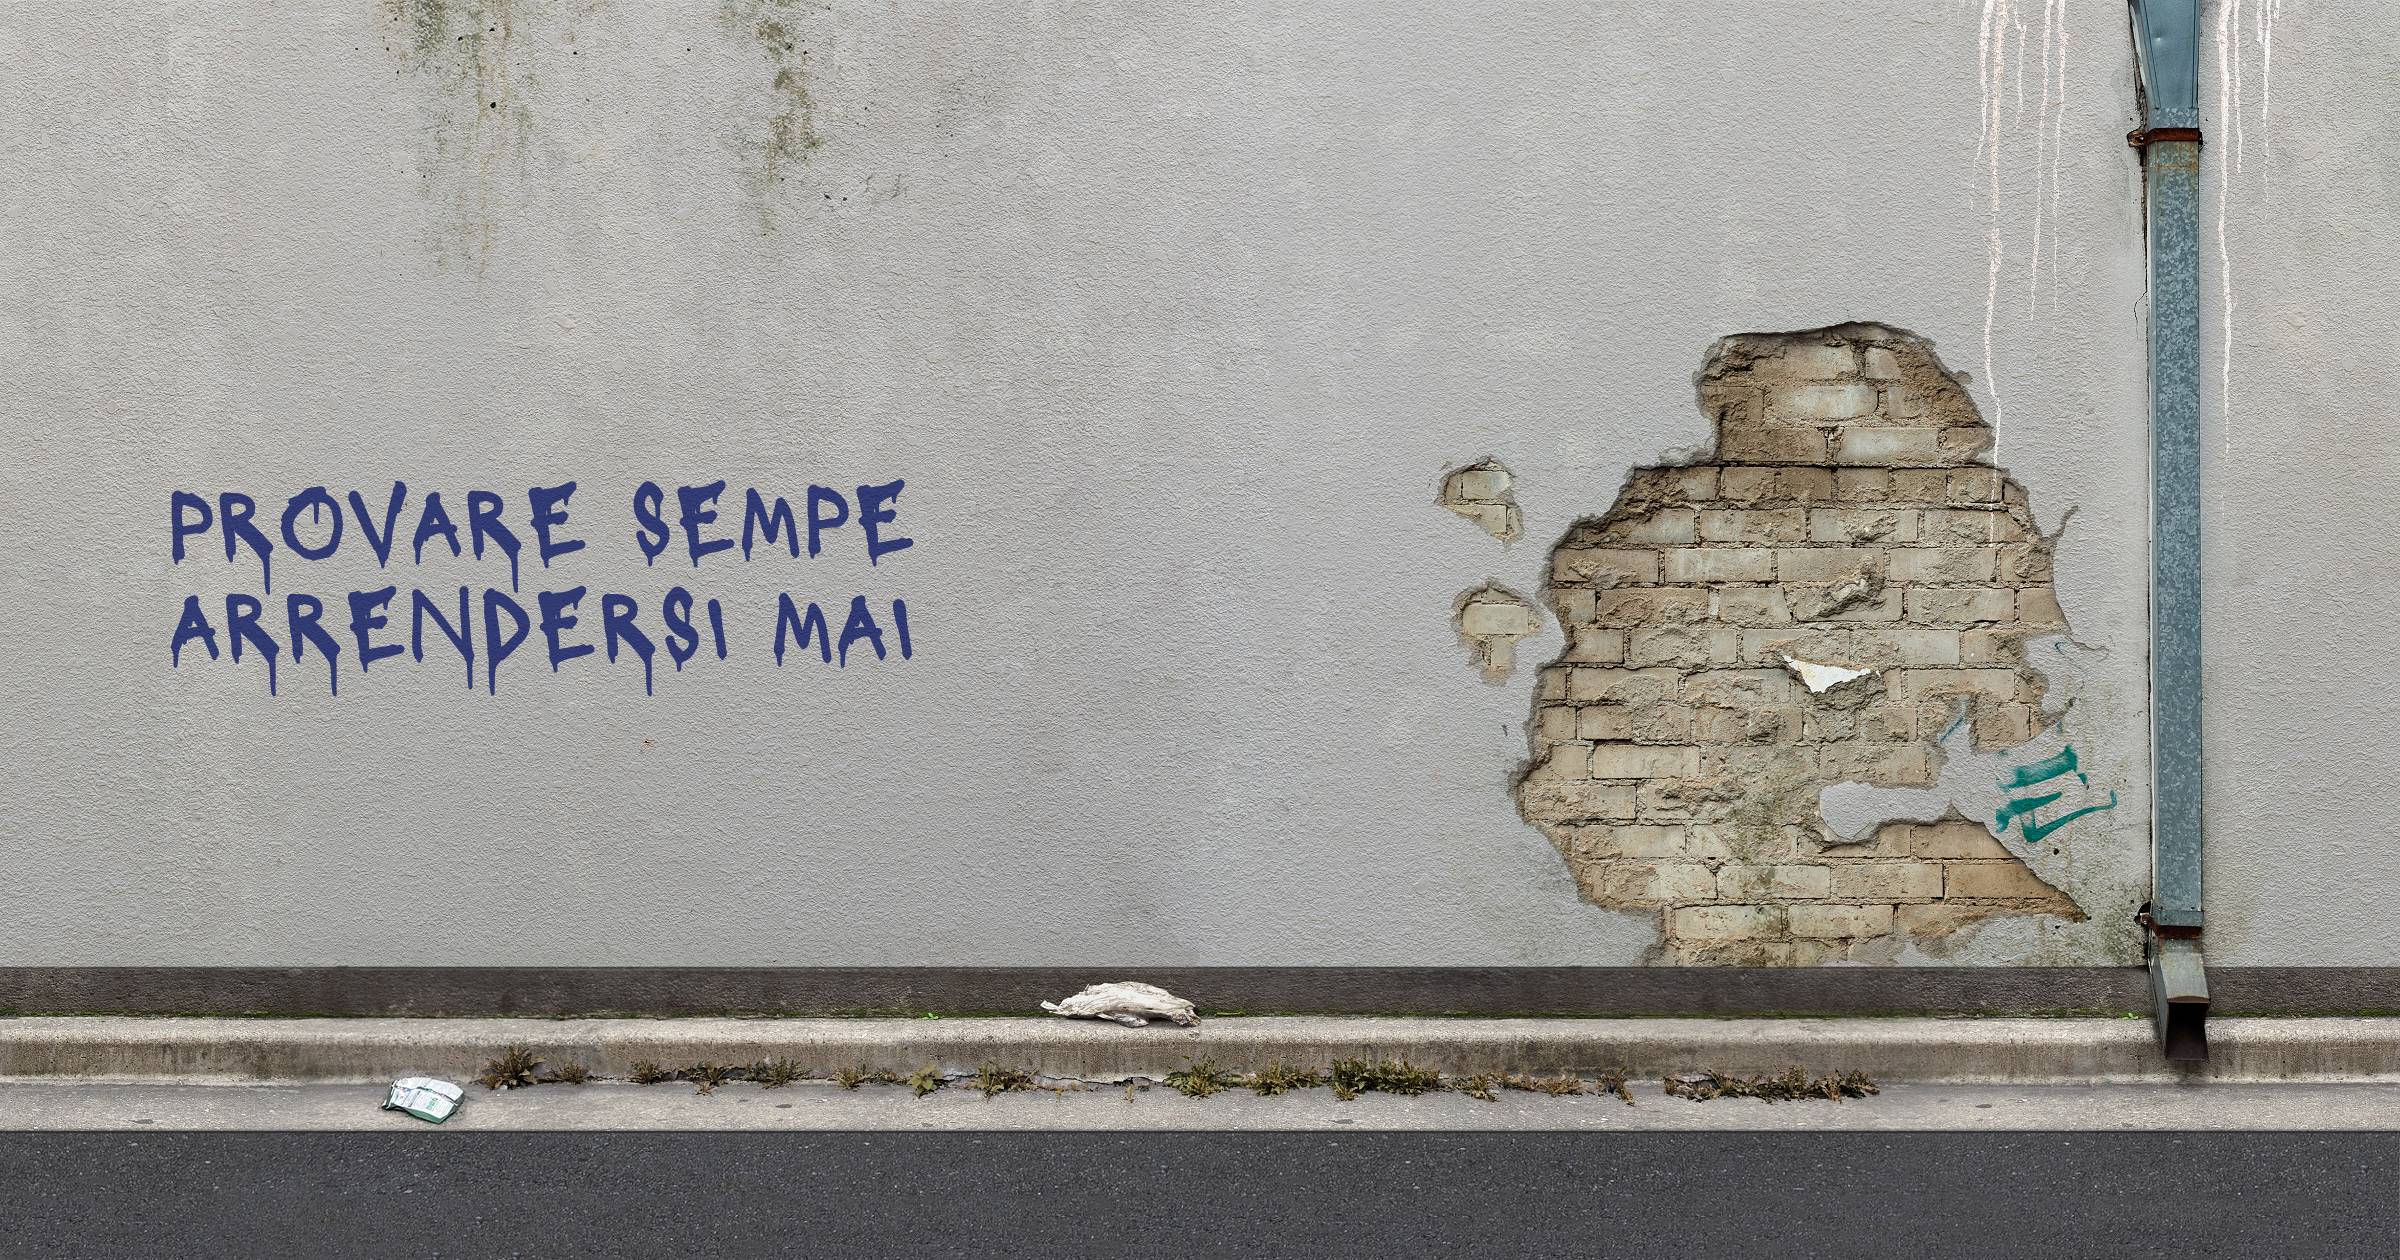 PROVARE SEMPE
ARRENDERSI MAI